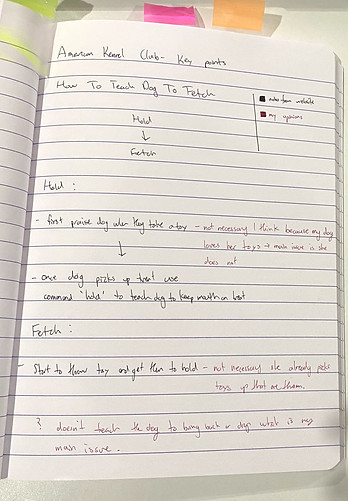 American Kennel Club - Key points
How To Teach Dog To Fetch
notes from website
my opinions
Hold
↓
Fetch
Hold :
- first praise dog when they take a toy - not necessary I think because my dog
loves her toys → main issue is she
does not
↓
- once dog picks up treat use
command 'hold' to teach dog to keep mouth on
Fetch :
- Start to throw toy and get them to hold - not necessary she already picks
toys up that are them.
? doesn't teach the dog to bring back or drop what is my
main issue.